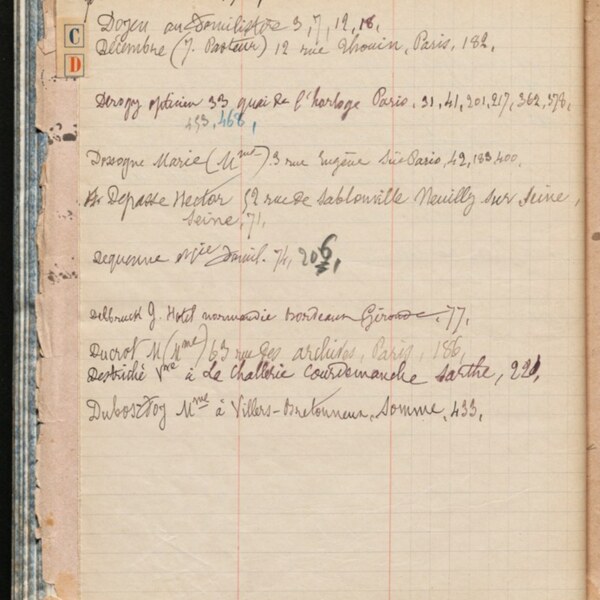 C
D
Doyen au Domilistore 3, 7, 12, 18.
Décembre (J. Pasteur) 12 rue Thouin, Paris, 182,
Derogy opticien 33, quai de l'horloge Paris, 31, 41, 201, 217, 362, 378,
453, 468,
Dossogne Marie (Mme) 3 rue Eugène Süe Paris, 42, 183, 400,
Depasse Hector 52 rue de Sablonville Neuilly sur Seine,
Seine, 71,
Dequenne 74, 206,
Delbruck J. Hotel normandie Bordeaux Gironde, 77,
Ducrot M (Mme) 63 rue des archives, Paris, 186,
Destriché Vme à La Challerie Courdemanche Sarthe, 221,
Mme à Villers-Bretonneux, Somme, 433,